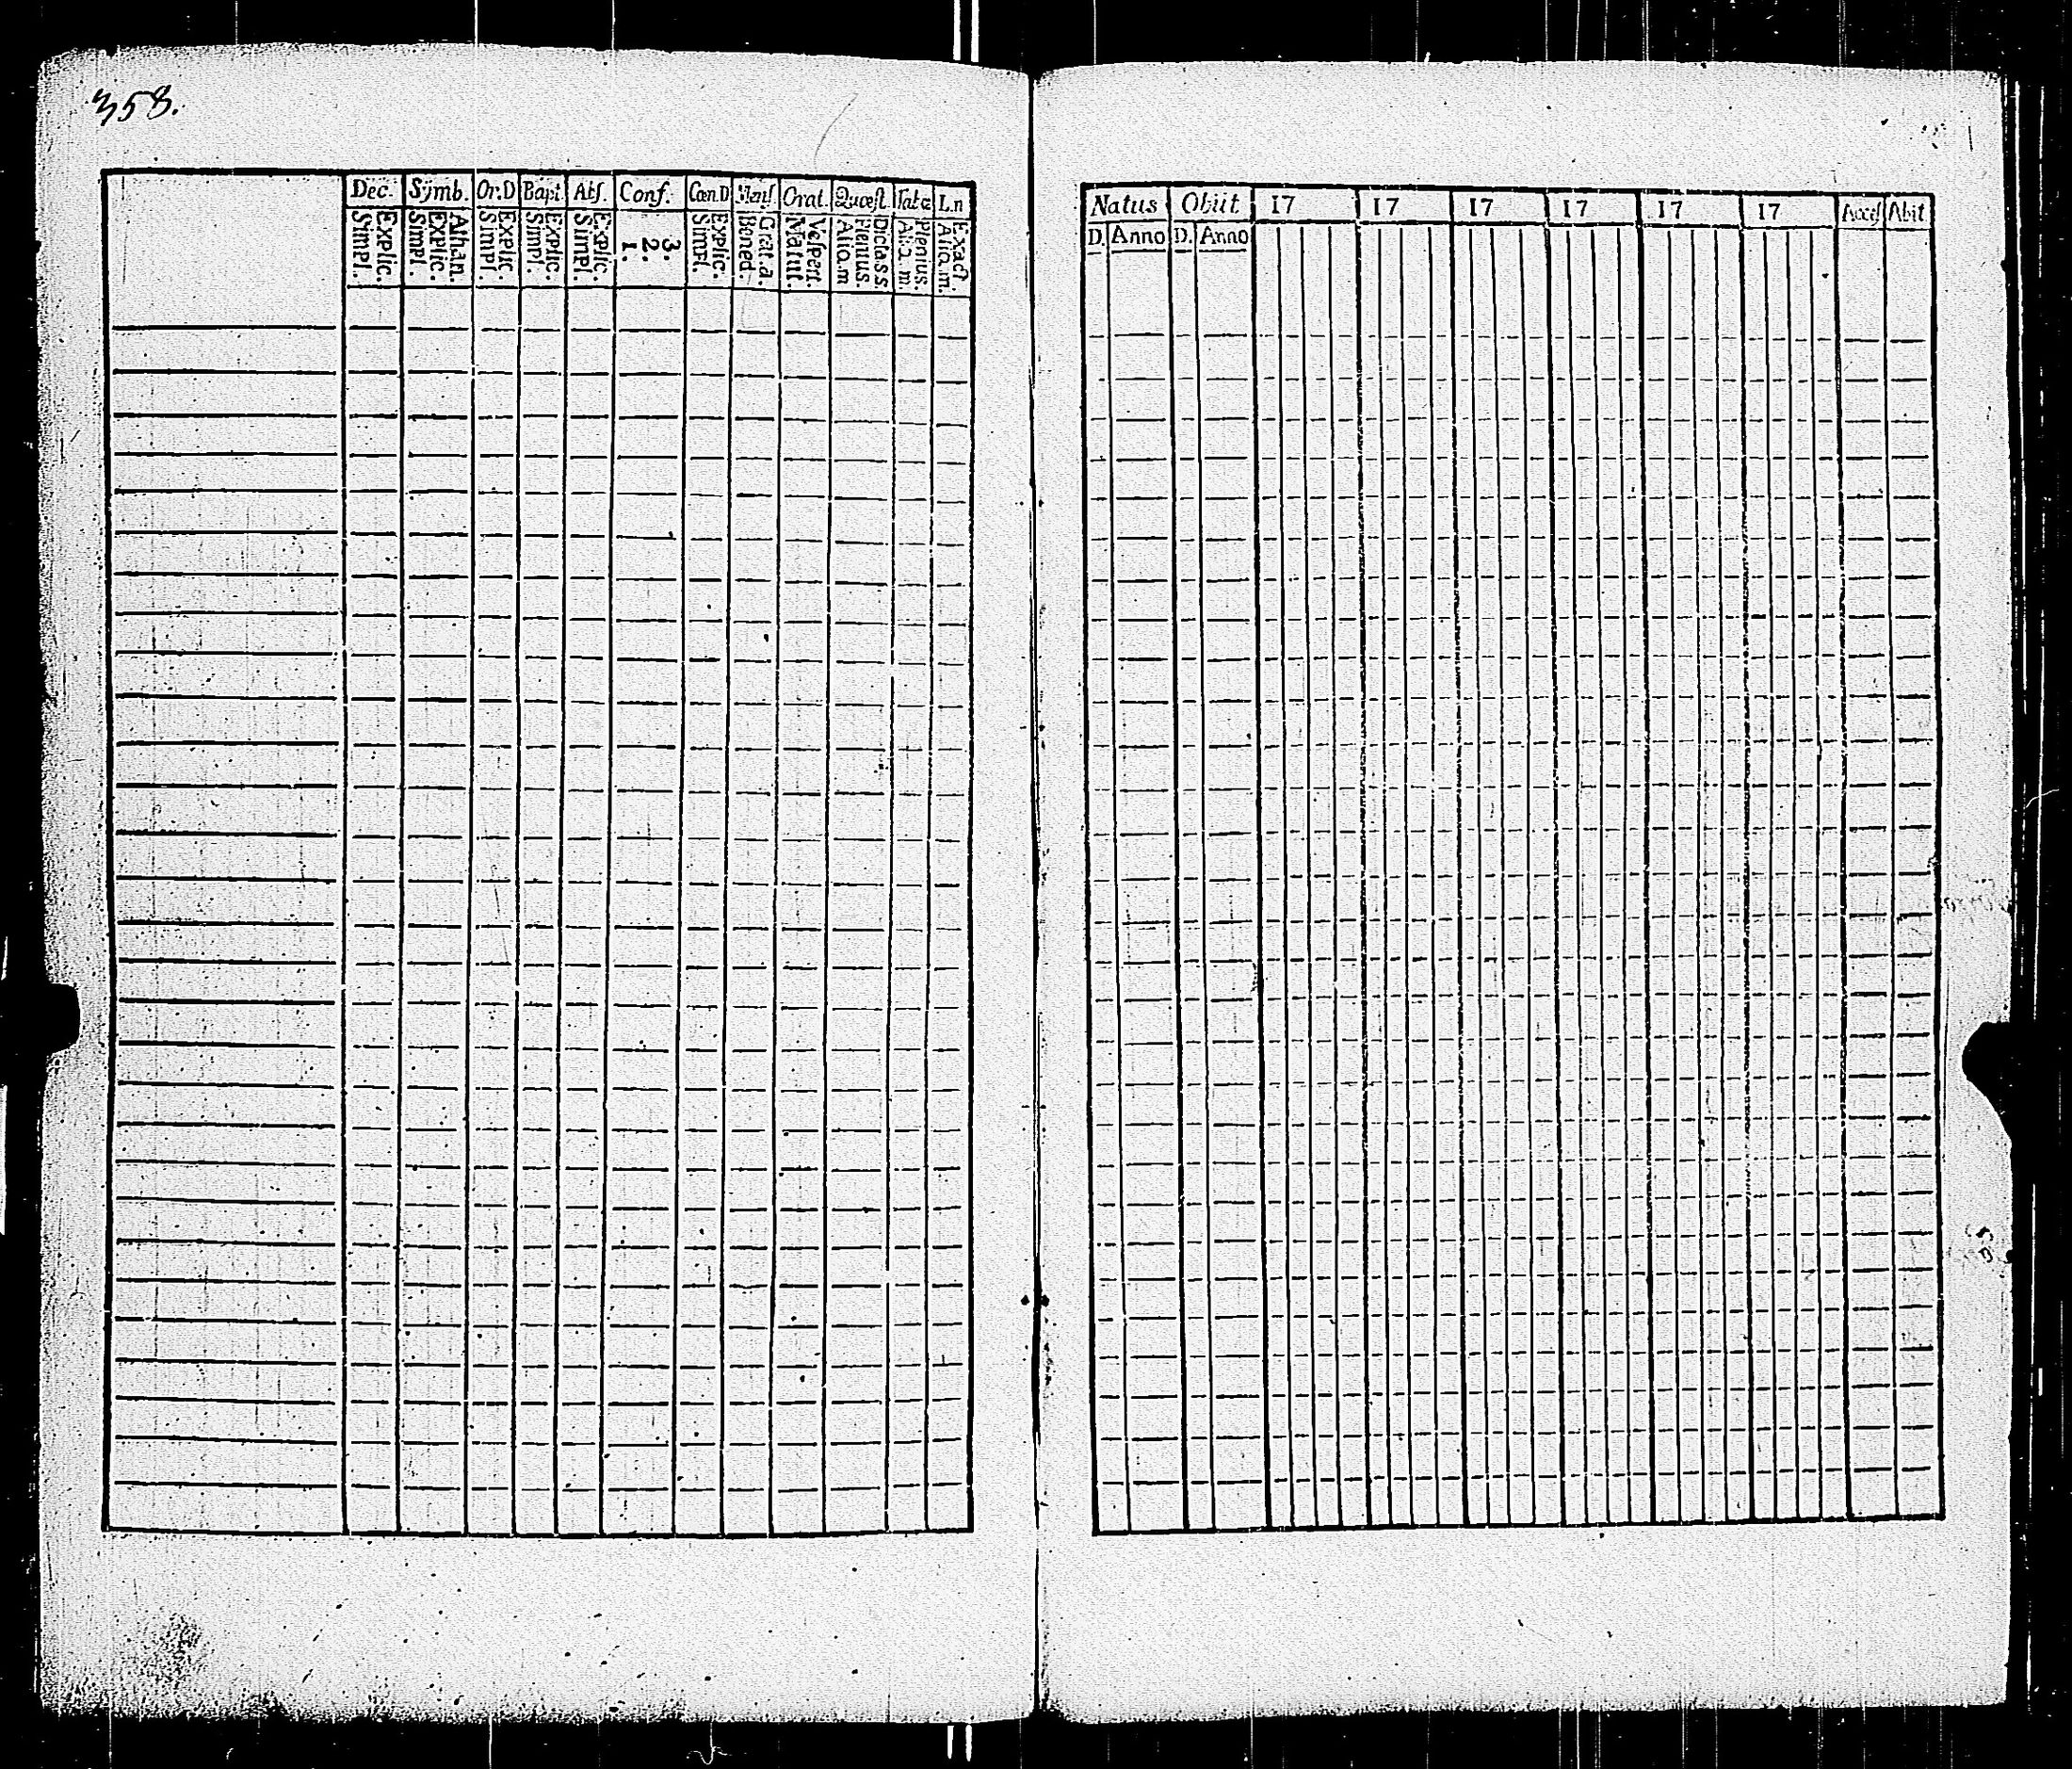 358.
Dec. Symb. Or.D Bapt. Abs. Conf. Cœn.D Mens. Orat. Quæst. Tabæ L.n
Explic. Simpl.
Athan. Explic. Simpl.
Explic. Simpl.
Explic. Simpl.
Explic. Simpl.
3. 2. 1.
Explic. Simpl.
Grat.a. Bened.
Vespert. Matut.
Dict.a s.s. Plenius. Aliq.m
Plenius. Aliq.m.
Exact. Aliq.m.
Natus Obiit 17 17 17 17 17 17 Access Abit
D. Anno D. Anno